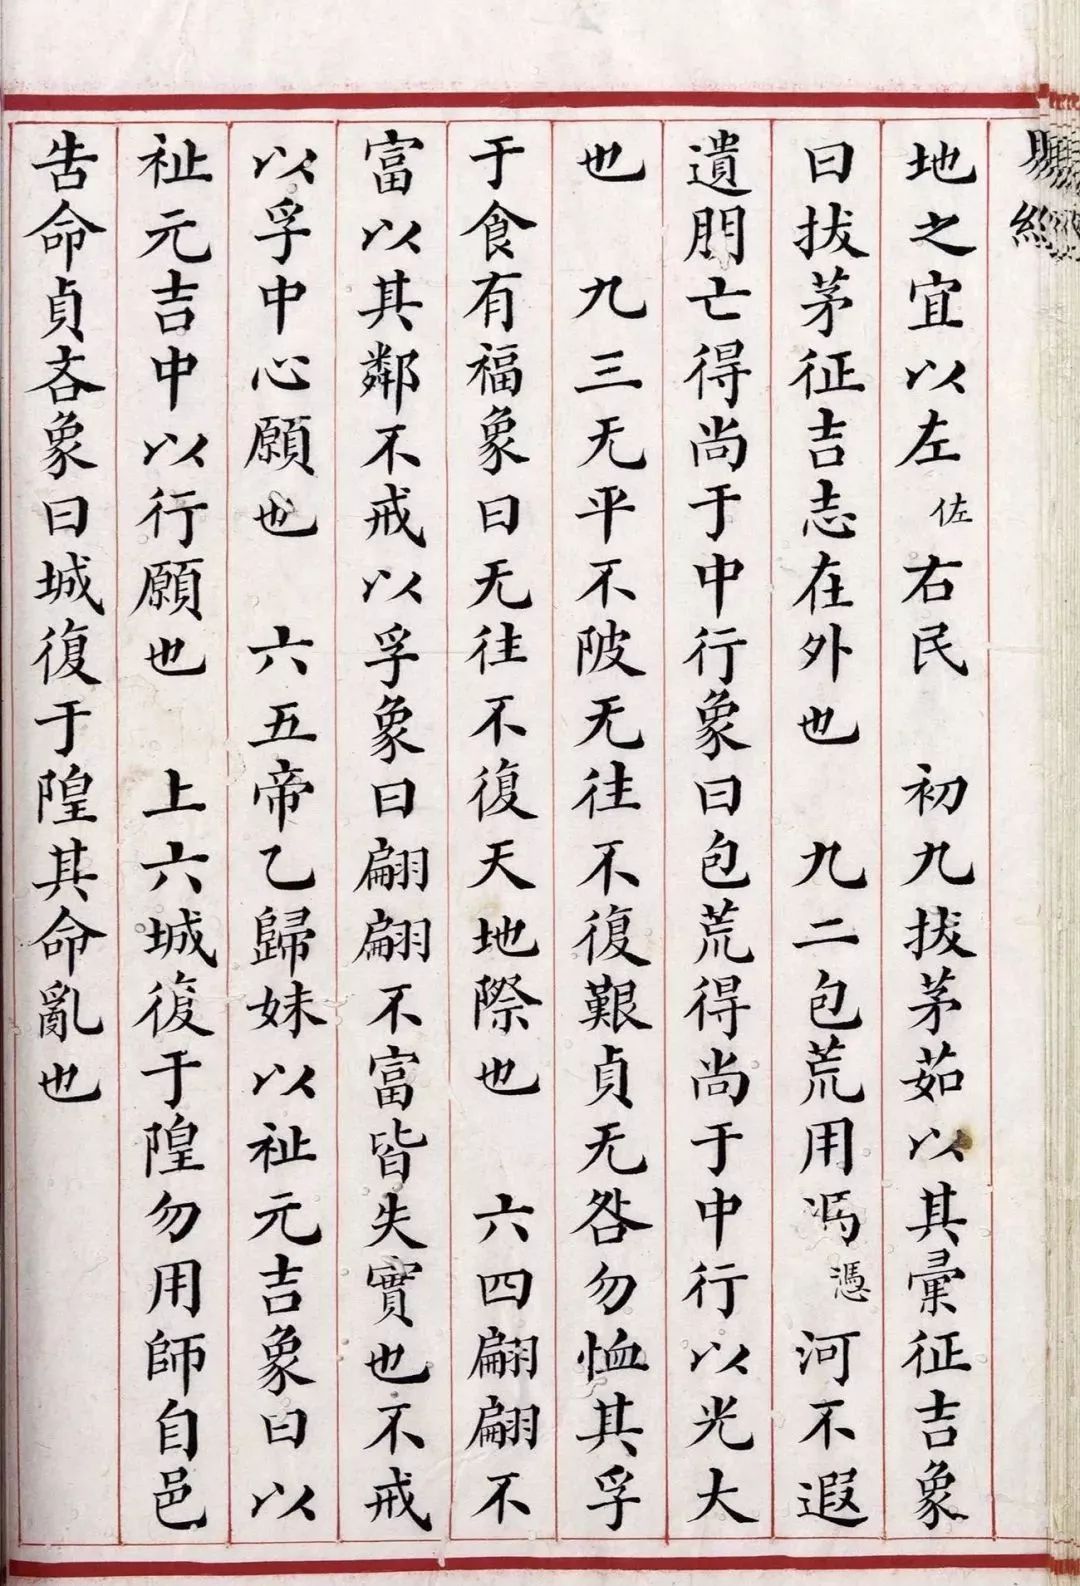 地之宜以左佐右民 初九拔茅茹以其彙征吉象
曰拔茅征吉志在外也 九二包荒用馮憑河不遐
遺朋亡得尚于中行象曰包荒得尚于中行以光大
也 九三无平不陂无往不復艱貞无咎勿恤其孚
于食有福象曰无往不復天地際也 六四翩翩不
富以其鄰不戒以孚象曰翩翩不富皆失實也不戒
以孚中心願也 六五帝乙歸妹以祉元吉象曰以
祉元吉中以行願也 上六城復于隍勿用師自邑
告命貞吝象曰城復于隍其命亂也